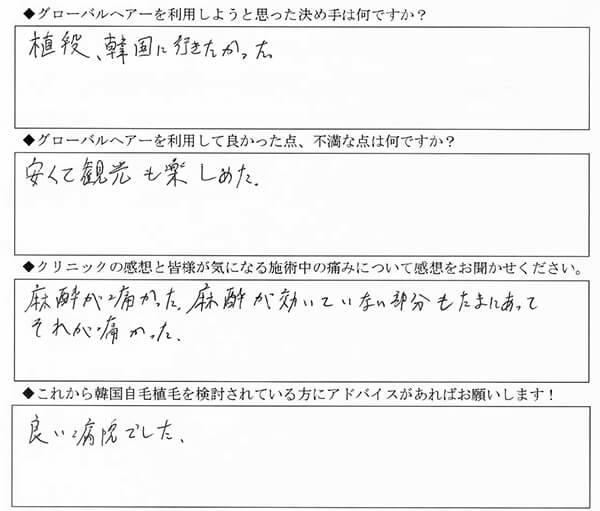 ◆グローバルヘアーを利用しようと思った決め手は何ですか?
植毛、韓国に行きたかった。
◆グローバルヘアーを利用して良かった点、不満な点は何ですか?
安くて観光も楽しめた。
◆クリニックの感想と皆様が気になる施術中の痛みについて感想をお聞かせください。
麻酔が痛かった。麻酔が効いていない部分もたまにあって
それが痛かった。
◆これから韓国自毛植毛を検討されている方にアドバイスがあればお願いします!
良い病院でした。